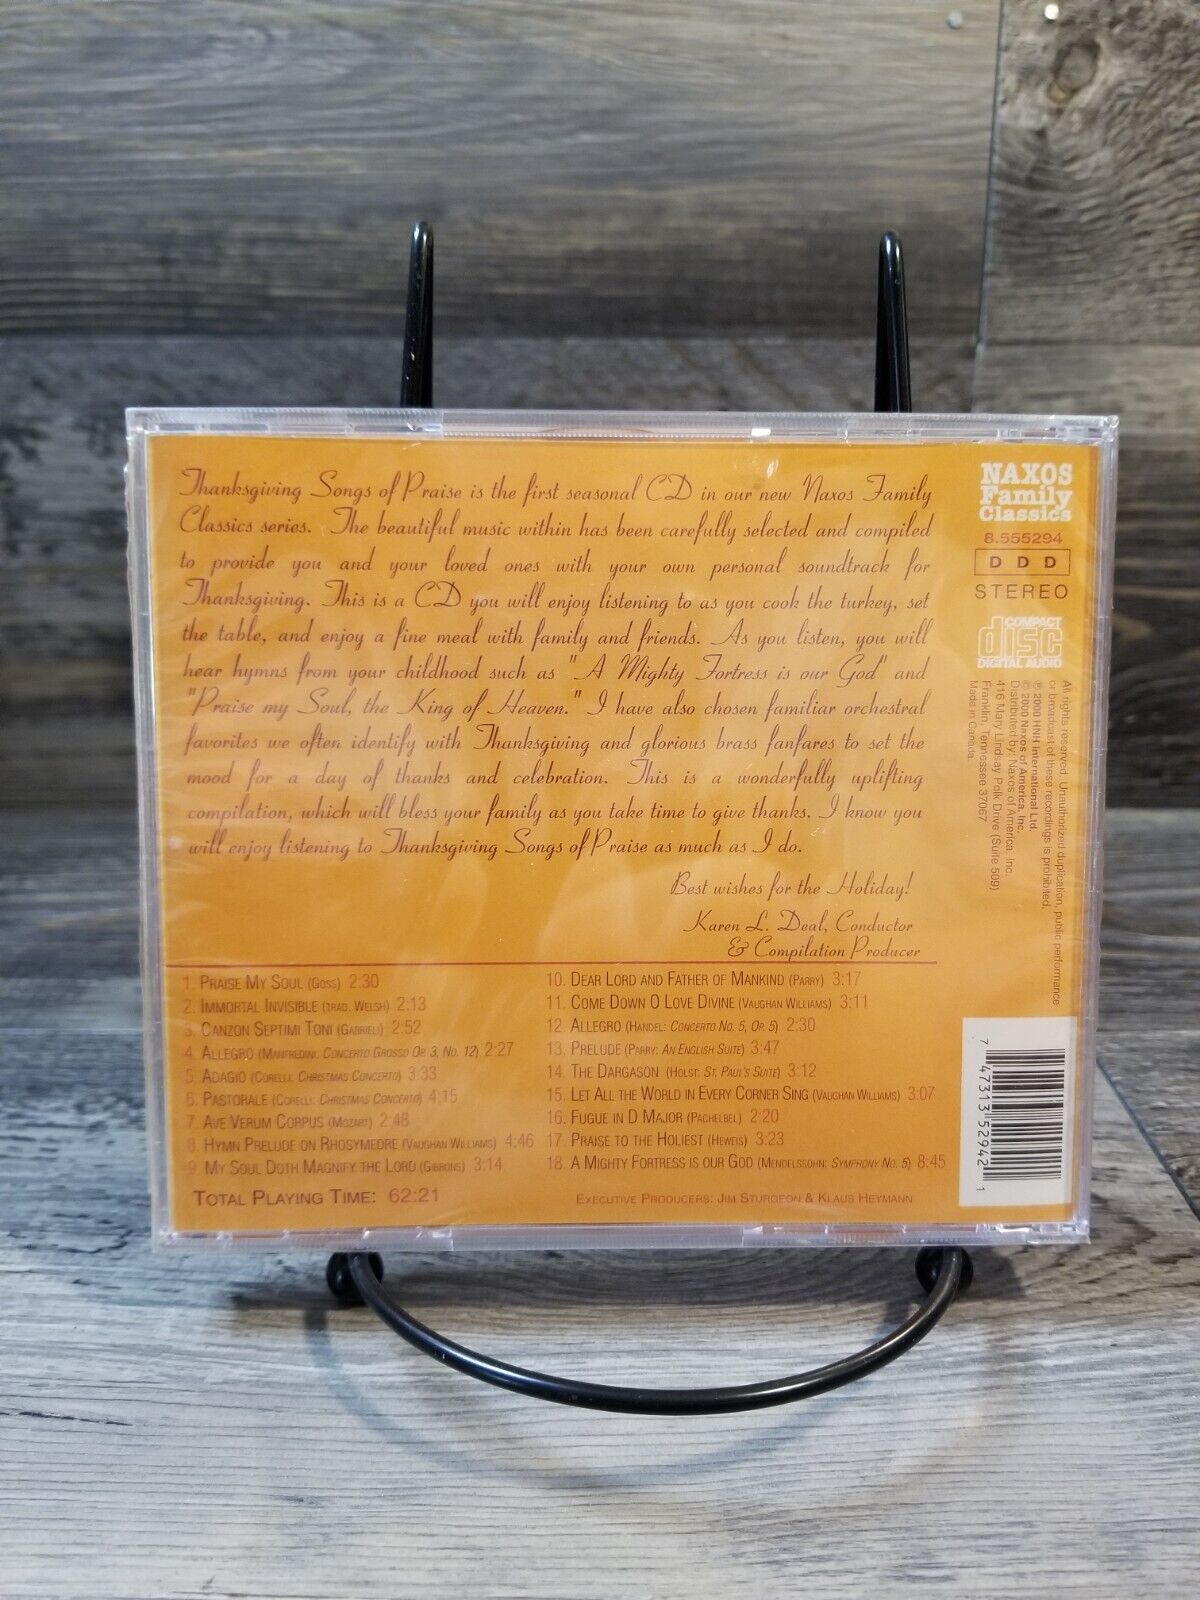 Thanksgiving Songs of Praise is the first seasonal CD in our new Naxos Family
Classics series. The beautiful music within has been carefully selected and compiled
to provide you and your loved ones with your own personal soundtrack for
Thanksgiving. This is a CD you will enjoy listening to as you cook the turkey, set
the table, and enjoy a fine meal with family and friends. As you listen, you will
hear hymns from your childhood such as "A Mighty Fortress is our God" and
"Praise my Soul, the King of Heaven." I have also chosen familiar orchestral
favorites we often identify with Thanksgiving and glorious brass fanfares to set the
mood for a day of thanks and celebration. This is a wonderfully uplifting
compilation, which will bless your family as you take time to give thanks. I know you
will enjoy listening to Thanksgiving Songs of Praise as much as I do.
Best wishes for the Holiday!
Karen L. Deal, Conductor
& Compilation Producer
1. Praise My Soul (Goss) 2:30
2. Immortal Invisible (trad. Welsh) 2:13
3. Canzon Septimi Toni (Gabrieli) 2:52
4. Allegro (Manfredini: Concerto Grosso Op. 3, No. 12) 2:27
5. Adagio (Corelli: Christmas Concerto) 3:33
6. Pastorale (Corelli: Christmas Concerto) 4:15
7. Ave Verum Corpus (Mozart) 2:48
8. Hymn Prelude on Rhosymedre (Vaughan Williams) 4:46
9. My Soul Doth Magnify the Lord (Gibbons) 3:14
Total Playing Time: 62:21
10. Dear Lord and Father of Mankind (Parry) 3:17
11. Come Down O Love Divine (Vaughan Williams) 3:11
12. Allegro (Handel: Concerto No. 5, Op. 5) 2:30
13. Prelude (Parry: An English Suite) 3:47
14. The Dargason (Holst: St. Paul's Suite) 3:12
15. Let All the World in Every Corner Sing (Vaughan Williams) 3:07
16. Fugue in D Major (Pachelbel) 2:20
17. Praise to the Holiest (Heweis) 3:23
18. A Mighty Fortress is our God (Mendelssohn: Symphony No. 5) 8:45
Executive Producers: Jim Sturgeon & Klaus Heymann
NAXOS
Family
Classics
8.555294
D D D
STEREO
COMPACT
disc
DIGITAL AUDIO
All rights reserved. Unauthorized duplication, public performance
or broadcast of these recordings is prohibited.
℗ 2000 HNH International Ltd.
© 2000 Naxos of America, Inc.
Distributed by: Naxos of America, Inc.
416 Mary Lindsay Polk Drive (Suite 509)
Franklin, Tennessee 37067
Made in Canada.
7 47313 52942 1